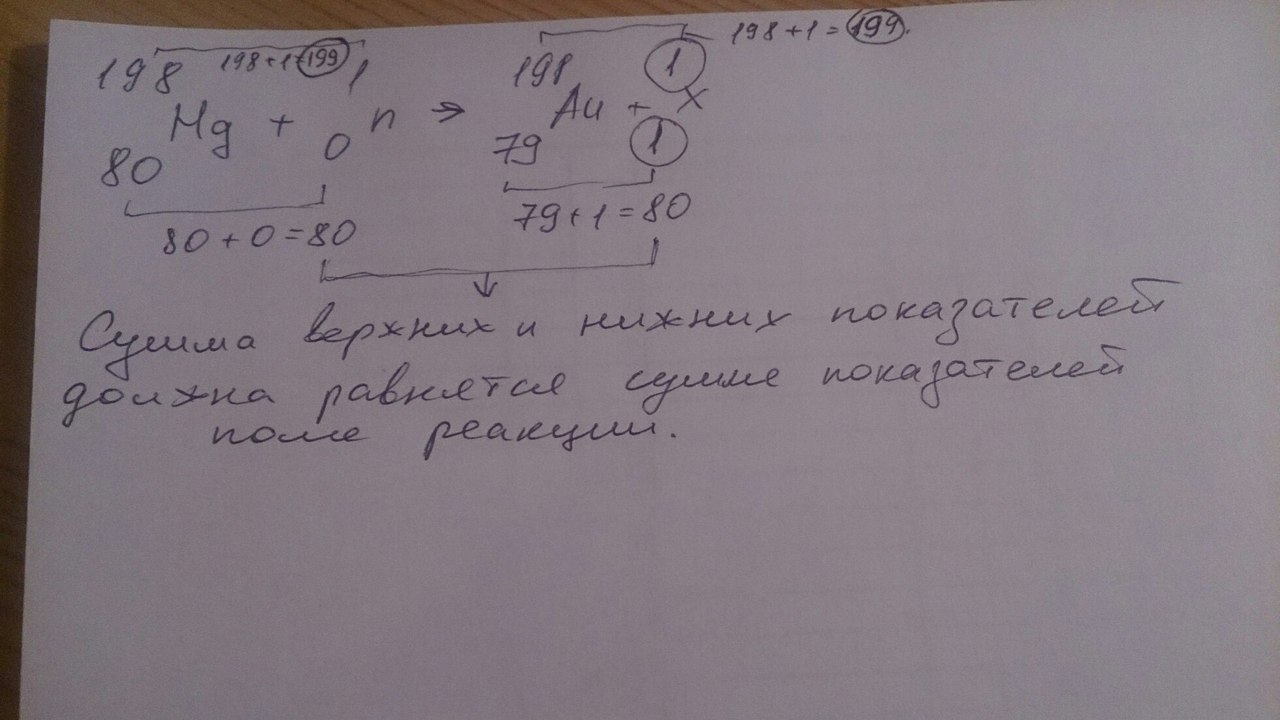 198 198+1=199 1 198 1 198+1=199.
80 Hg + 0 n → 79 Au + 1 X
80+0=80 79+1=80
Сумма верхних и нижних показателей
должна равнятся сумме показателей
после реакции.